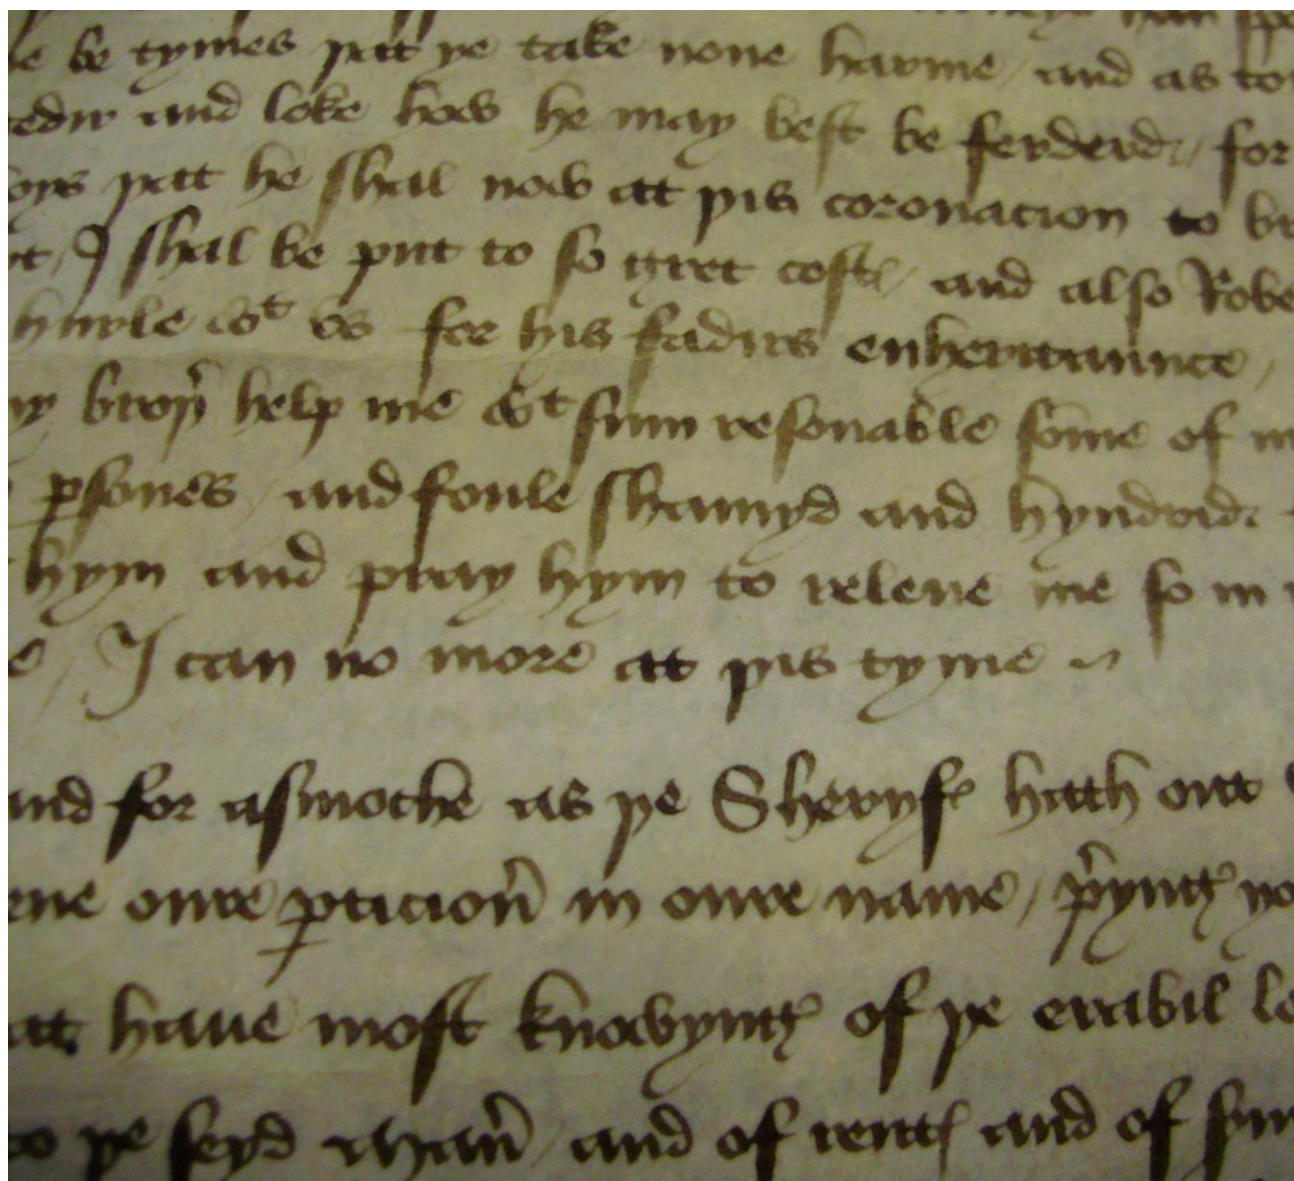 be tymes þat ye take none harme / and as to
and loke how he may best be ferderd / for
þat he shal now at þis coronacion to
I shal be put to so gret cost / and also Robe
wᵗ vs for his fadirs enheritaunce /
help me wᵗ sum resonable some of m
ꝑsones / and foule shamyd and hyndrid
hym and pray hym to releve me so in
I can no more at þis tyme
and for asmoche as þe Sheryf hath
oure ꝑticion in oure name /
at haue most knowyng of þe erabil
þe seyd and of rent and of